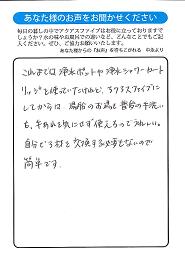 あなた様のお声をお聞かせください
毎日の暮しの中でアクアスファイブはお役に立っておりますで
しょうか？水の味やお風呂での違いなど、どんなことでもご記
入ください。ぜひ、ご協力お願いいたします。
あなた様からの「お声」を待ちこがれる 中島より
これまでは浄水ポットや浄水シャワーカート
リッジを使っていたけれど、アクアスファイブに
してからは、湯船のお湯も普段の手洗い
も、半年以上気にせず使えるのでうれしい。
自分でろ材を交換する必要もないので
簡単です。